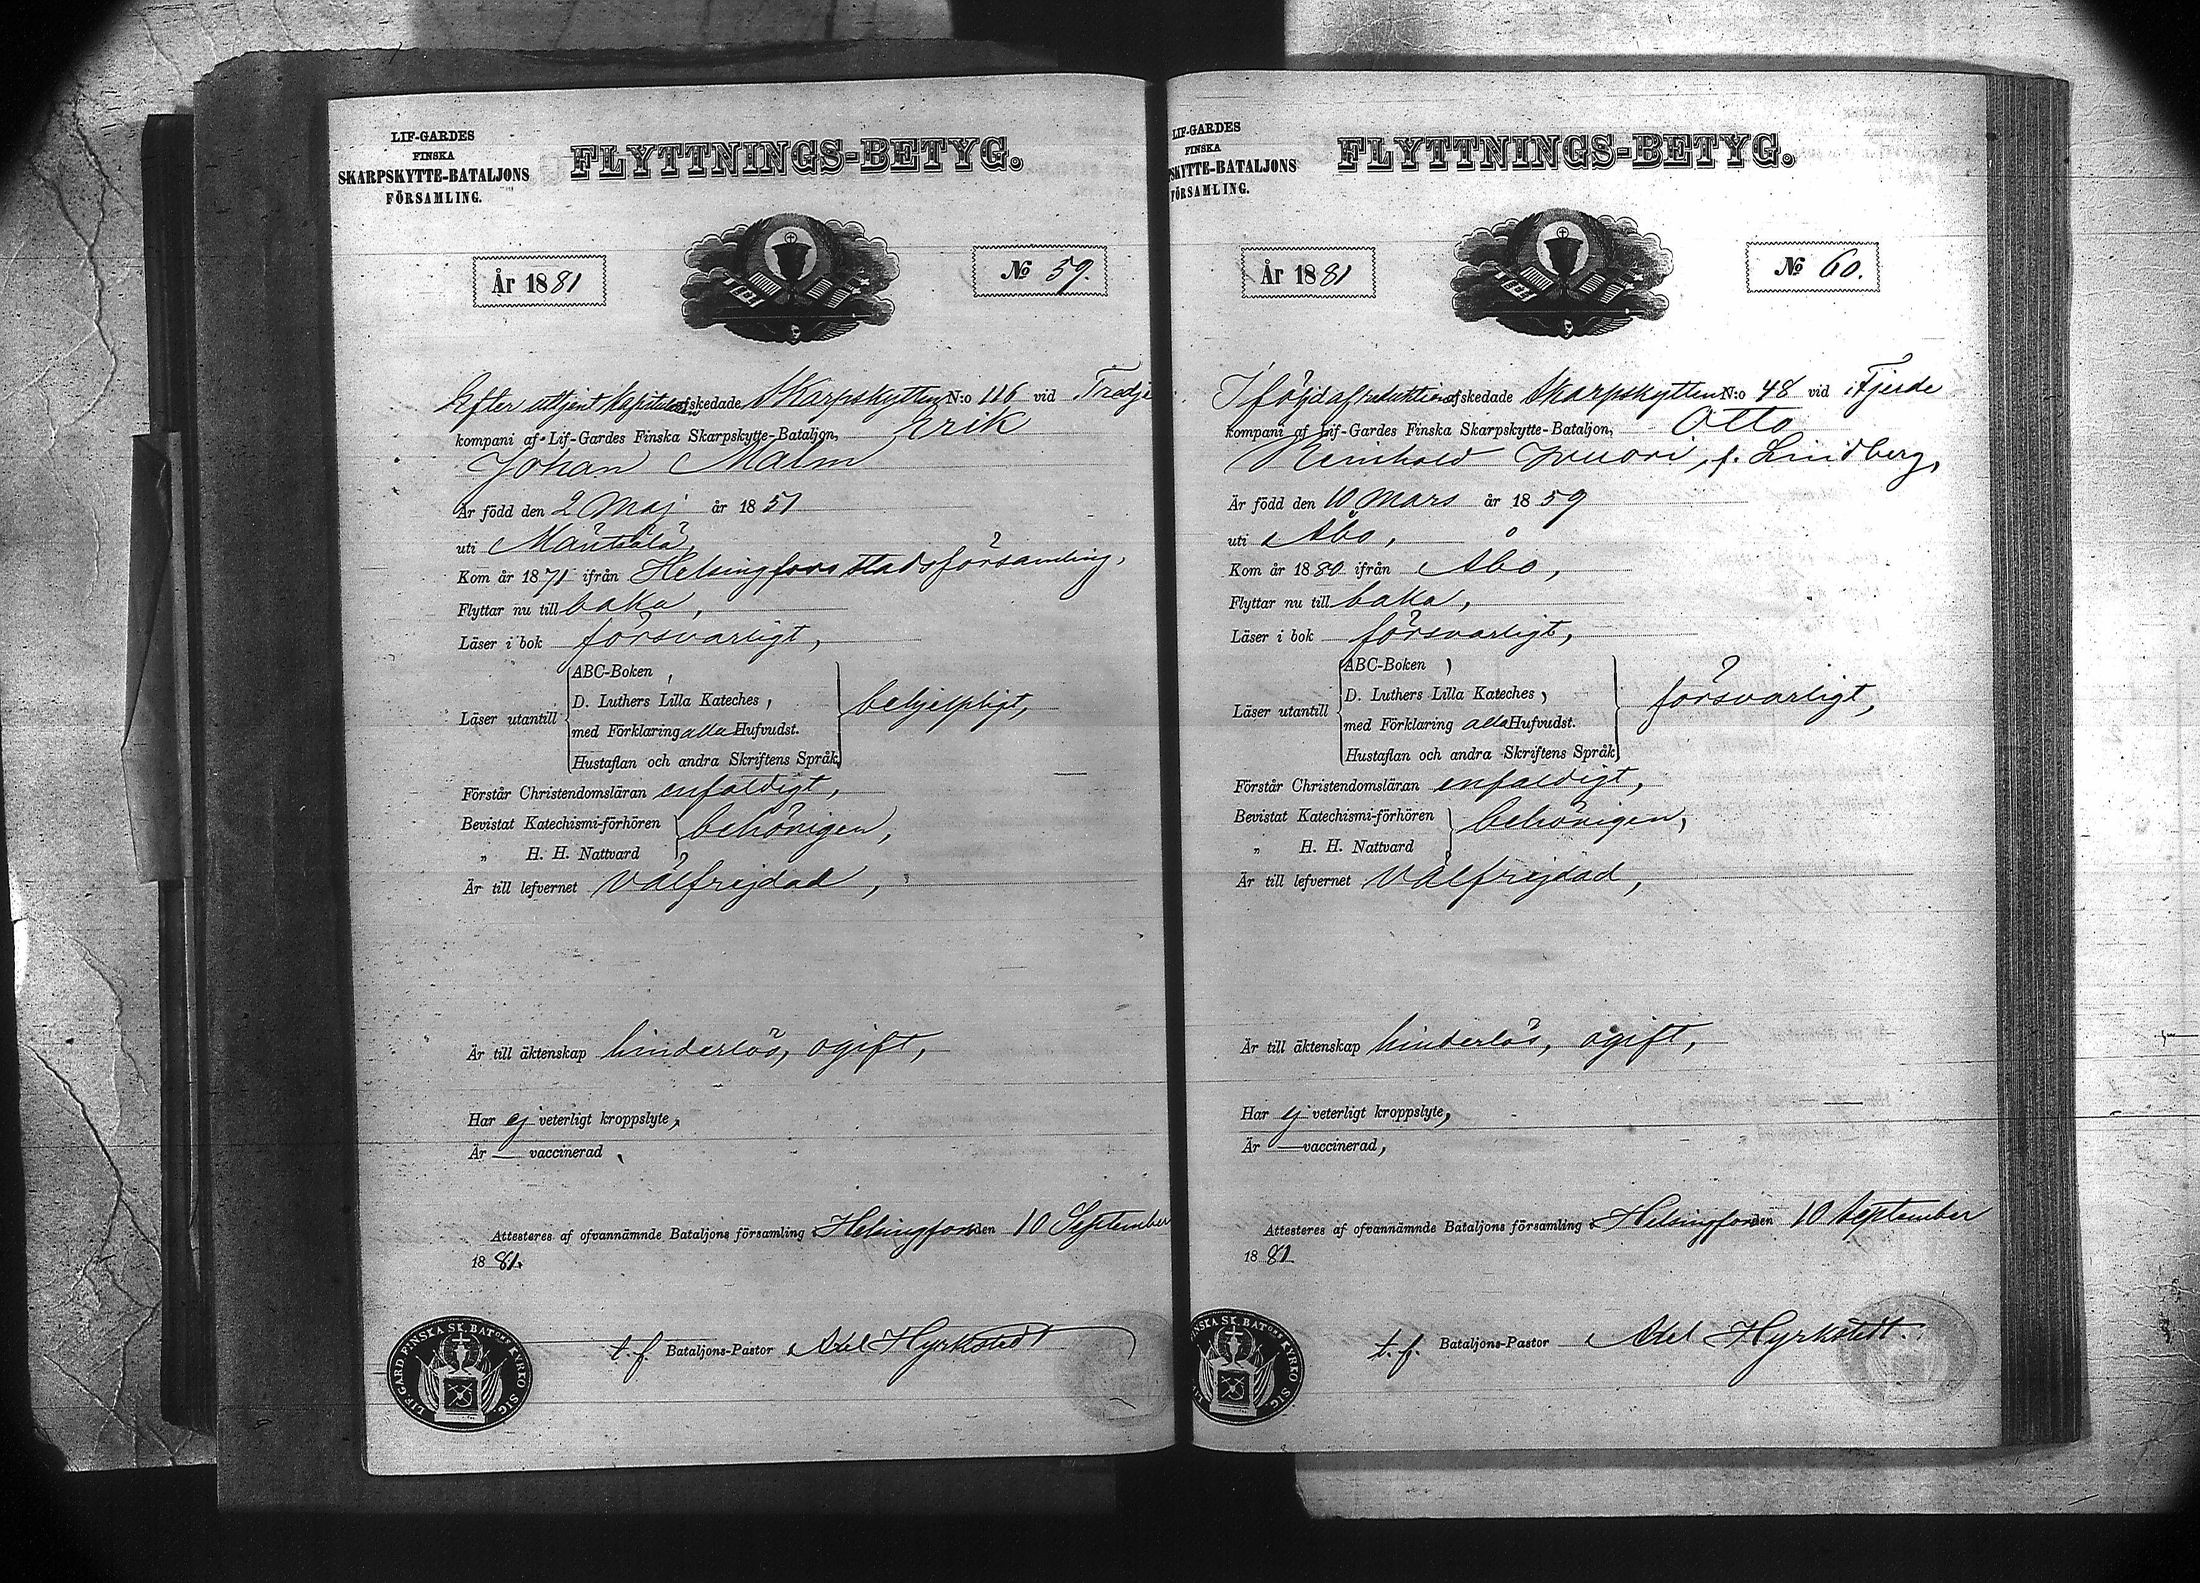 LIF-GARDES
FINSKA
SKARPSKYTTE-BATALJONS
FÖRSAMLING.
FLYTTNINGS-BETYG.
År 1881
No 59.
Efter uttjent kapitulation afskedade Skarpskytten N:o 116 vid Tredje
kompani af Lif-Gardes Finska Skarpskytte-Bataljon, Erik
Johan Malm
Är född den 2 Maj år 1851
uti Mäntsälä,
Kom år 1871 ifrån Helsingfors stadsförsamling,
Flyttar nu till baka,
Läser i bok försvarligt,
Läser utantill
ABC-Boken,
D. Luthers Lilla Kateches,
med Förklaring alla Hufvudst.
Hustaflan och andra Skriftens Språk
behjelpligt,
Förstår Christendomsläran enfaldigt,
Bevistat Katechismi-förhören
„ H. H. Nattvard
behörigen,
Är till lefvernet välfrejdad,
Är till äktenskap hinderlös, ogift,
Har ej veterligt kroppslyte,
Är — vaccinerad,
Attesteres af ofvannämnde Bataljons församling Helsingfors den 10 September
1881.
t. f. Bataljons-Pastor Axel Hyrkstedt
LIF-GARD FINSKA SK. BATONS KYRKO SIG.
LIF-GARDES
FINSKA
SKYTTE-BATALJONS
FÖRSAMLING.
FLYTTNINGS-BETYG.
År 1881
No 60.
I följd af reduktion afskedade Skarpskytten N:o 48 vid Fjerde
kompani af Lif-Gardes Finska Skarpskytte-Bataljon, Otto
Reinhold Ivuori, f. Lindberg,
Är född den 10 Mars år 1859
uti Åbo,
Kom år 1880 ifrån Åbo,
Flyttar nu till baka,
Läser i bok försvarligt,
Läser utantill
ABC-Boken,
D. Luthers Lilla Kateches,
med Förklaring alla Hufvudst.
Hustaflan och andra Skriftens Språk
försvarligt,
Förstår Christendomsläran enfaldigt,
Bevistat Katechismi-förhören
„ H. H. Nattvard
behörigen,
Är till lefvernet välfrejdad,
Är till äktenskap hinderlös, ogift,
Har ej veterligt kroppslyte,
Är — vaccinerad,
Attesteres af ofvannämnde Bataljons församling Helsingfors den 10 September
1881
t. f. Bataljons-Pastor Axel Hyrkstedt.
FINSKA SK. BATONS KYRKO SIG.